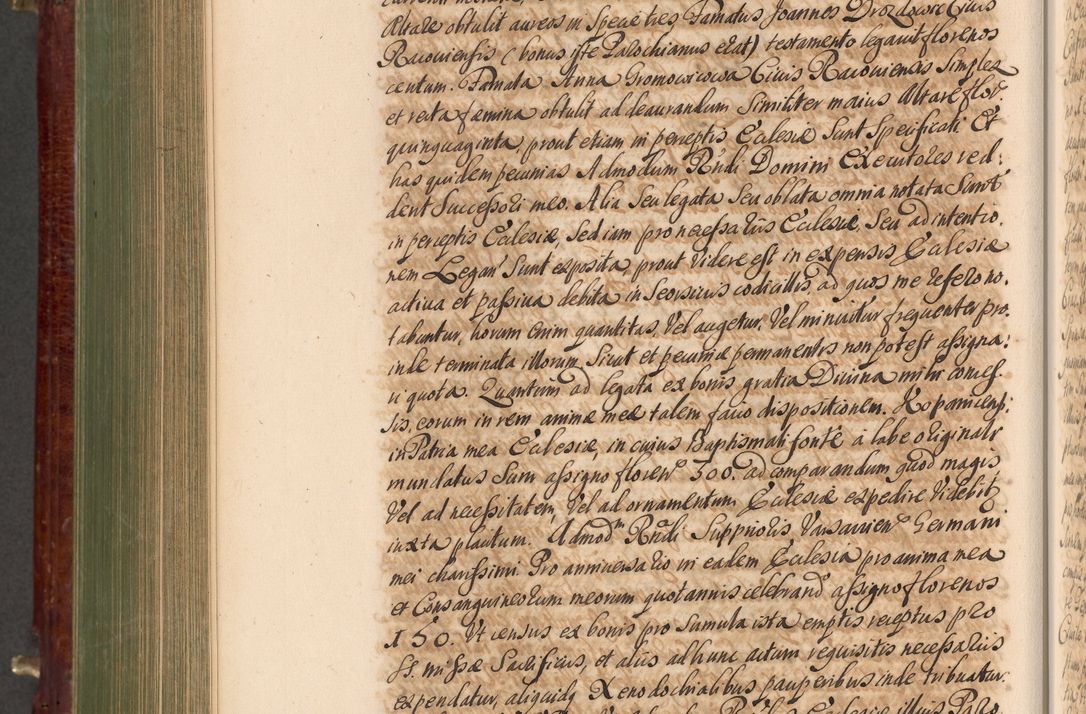 Altare obtulit aureos in Specie tres Famatus Joannes Drozdowic Civis
Racoviensis (bonus iste Parochianus erat) testamento legavit florenos
centum. Famata Anna Gromowicowa Civis Racoviensis Simplex
et recta fæmina obtulit ad deaurandum Similiter maius Altare flor.
quinquaginta, prout etiam in perceptis Ecclesiæ Sunt Specificati Et
has quidem pecunias Admodum Rñdi Domini Executores red:
dent Successori meo. Alia Seu legata Seu oblata omnia notata Sunt
in perceptis Ecclesiæ, Sed iam pro necessariis Ecclesiæ, Seu ad intentio.
nem Legan' Sunt exposita, prout videre est in expensis Ecclesiæ
activa et passiva debita in Seorsivis codicillis ad quos me refero no.
tabuntur, horum enim quantitas, Vel augetur, Vel minuitur frequenter pro.
inde terminata illorum, Sicut et pecuniæ permanentis non potest assigna:
ri quota. Quantum ad legata ex bonis gratia Divina mihi conces.
sis, eorum in rem animæ meæ talem facio dispositionem.
in Patria mea Ecclesiæ, in cuius Baptismali fonte a labe originali
mundatus Sum assigno floren' 300. ad comparandum quod magis
Vel ad necessitatem, Vel ad ornamentum Ecclesiæ expedire videbit
iuxta placitum. Admodm Rñdi Supprioris Varsavien' Germani
mei charissimi Pro anniversario in eadem Ecclesia pro anima mea
et Consanguineorum meorum quotannis celebrand' assigno florenos
150. Ut census ex bonis pro Sumula ista emptis receptus pro
SS. missæ Sacrificiis, et aliis ad hunc actum requisitis necessariis
expendatur, aliquidq Xenodochialibus pauperibus inde tribuatur.